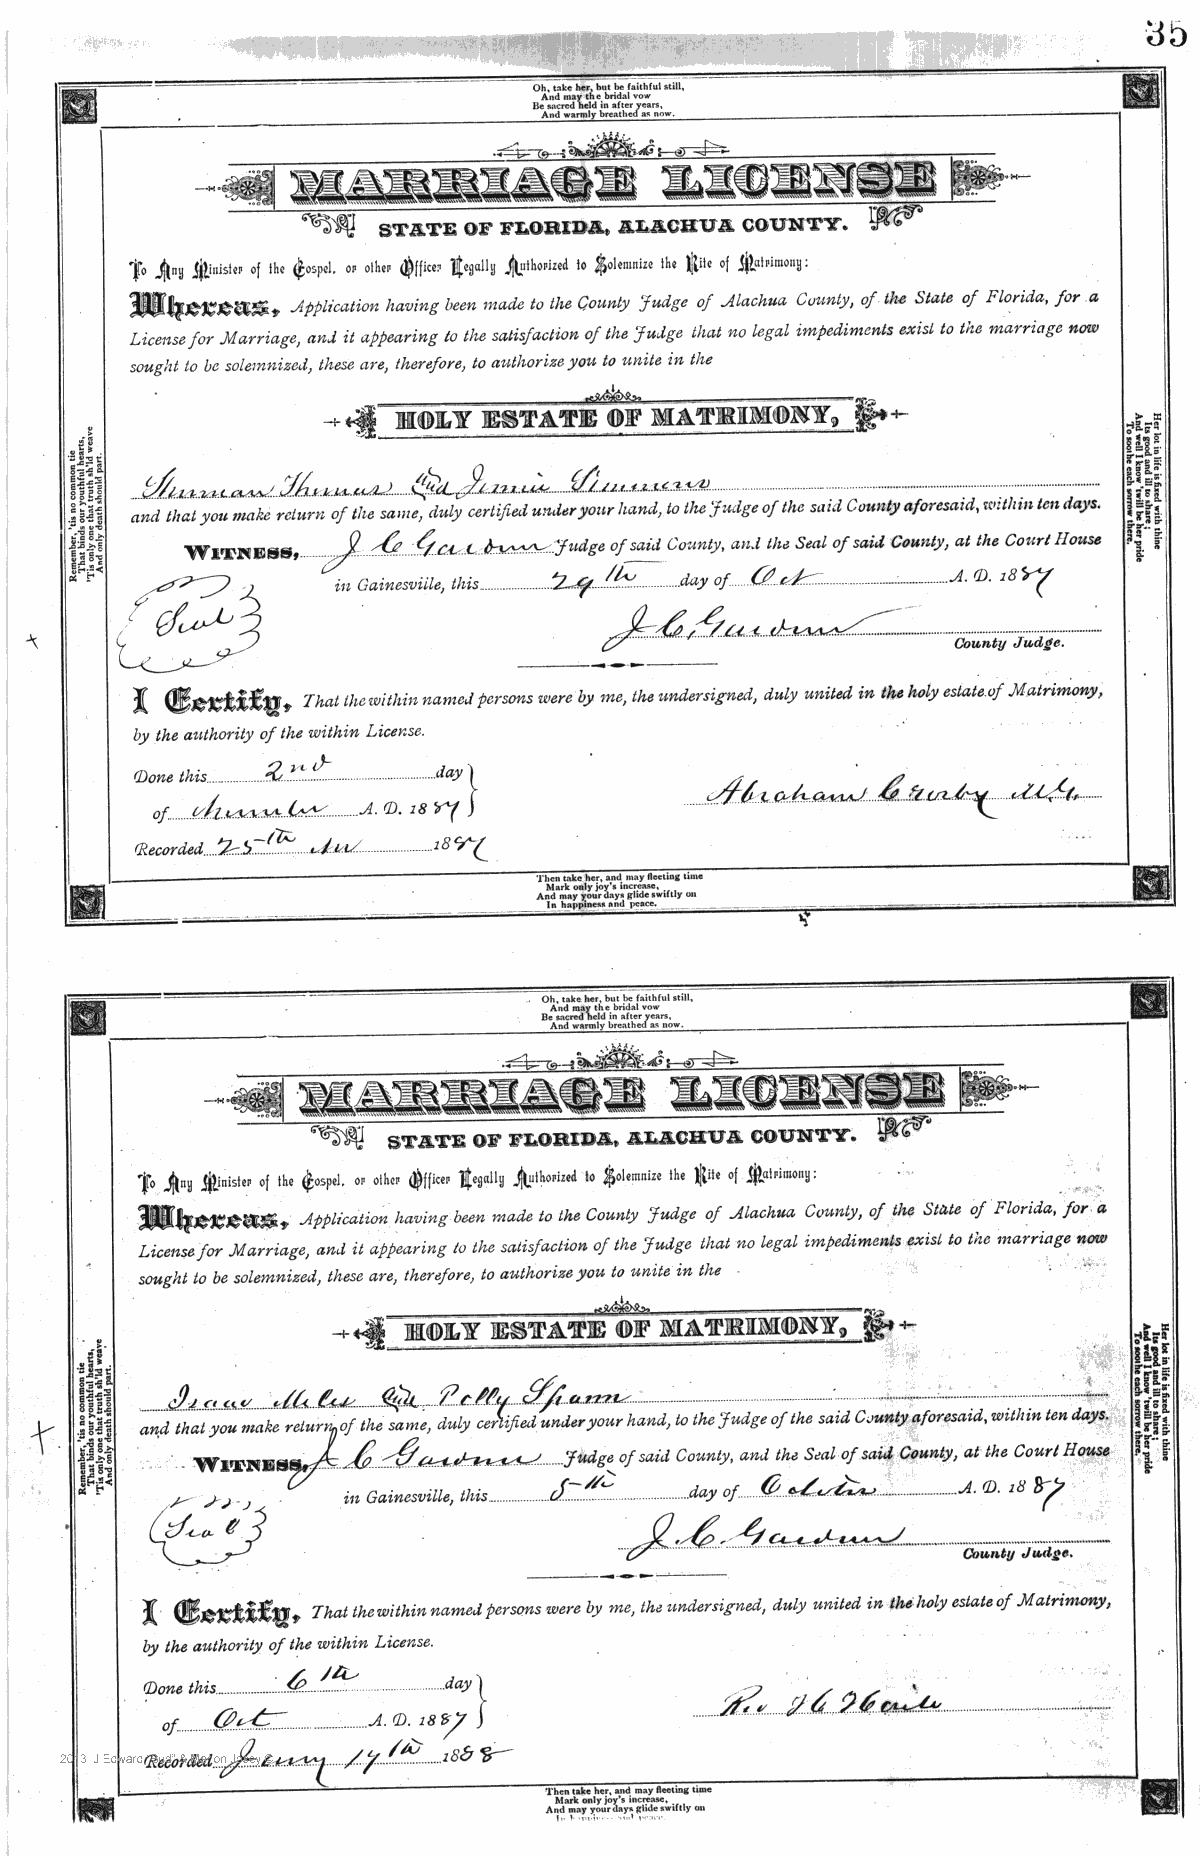 35
Oh, take her, but be faithful still,
And may the bridal vow
Be sacred held in after years,
And warmly breathed as now.
MARRIAGE LICENSE
STATE OF FLORIDA, ALACHUA COUNTY.
To Any Minister of the Gospel, or other Officer Legally Authorized to Solemnize the Rite of Matrimony:
Whereas, Application having been made to the County Judge of Alachua County, of the State of Florida, for a
License for Marriage, and it appearing to the satisfaction of the Judge that no legal impediments exist to the marriage now
sought to be solemnized, these are, therefore, to authorize you to unite in the
HOLY ESTATE OF MATRIMONY,
Sherman Thomas and Jennie Simmons
and that you make return of the same, duly certified under your hand, to the Judge of the said County aforesaid, within ten days.
WITNESS, J C Gardner Judge of said County, and the Seal of said County, at the Court House
in Gainesville, this 29th day of Oct A. D. 1887
Seal
J. C. Gardner
County Judge.
I Certify, That the within named persons were by me, the undersigned, duly united in the holy estate of Matrimony,
by the authority of the within License.
Done this 2nd day
of November A. D. 1887
Abraham Crosby M.G.
Recorded 25th Nov 1887
Then take her, and may fleeting time
Mark only joy's increase,
And may your days glide swiftly on
In happiness and peace.
Remember, 'tis no common tie
That binds our youthful hearts,
'Tis only one that truth sh'ld weave
And only death should part.
Her lot in life is fixed with thine
Its good and ill to share;
And well I know 'twill be her pride
To soothe each sorrow there.
Oh, take her, but be faithful still,
And may the bridal vow
Be sacred held in after years,
And warmly breathed as now.
MARRIAGE LICENSE
STATE OF FLORIDA, ALACHUA COUNTY.
To Any Minister of the Gospel, or other Officer Legally Authorized to Solemnize the Rite of Matrimony:
Whereas, Application having been made to the County Judge of Alachua County, of the State of Florida, for a
License for Marriage, and it appearing to the satisfaction of the Judge that no legal impediments exist to the marriage now
sought to be solemnized, these are, therefore, to authorize you to unite in the
HOLY ESTATE OF MATRIMONY,
Isaac Miles and Polly Spann
and that you make return of the same, duly certified under your hand, to the Judge of the said County aforesaid, within ten days.
WITNESS, J C Gardner Judge of said County, and the Seal of said County, at the Court House
in Gainesville, this 5th day of October A. D. 1887
Seal
J. C. Gardner
County Judge.
I Certify, That the within named persons were by me, the undersigned, duly united in the holy estate of Matrimony,
by the authority of the within License.
Done this 6th day
of Oct A. D. 1887
Rev H C
Recorded 17th 1888
Then take her, and may fleeting time
Mark only joy's increase,
And may your days glide swiftly on
In happiness and peace.
Remember, 'tis no common tie
That binds our youthful hearts,
'Tis only one that truth sh'ld weave
And only death should part.
Her lot in life is fixed with thine
Its good and ill to share;
And well I know 'twill be her pride
To soothe each sorrow there.